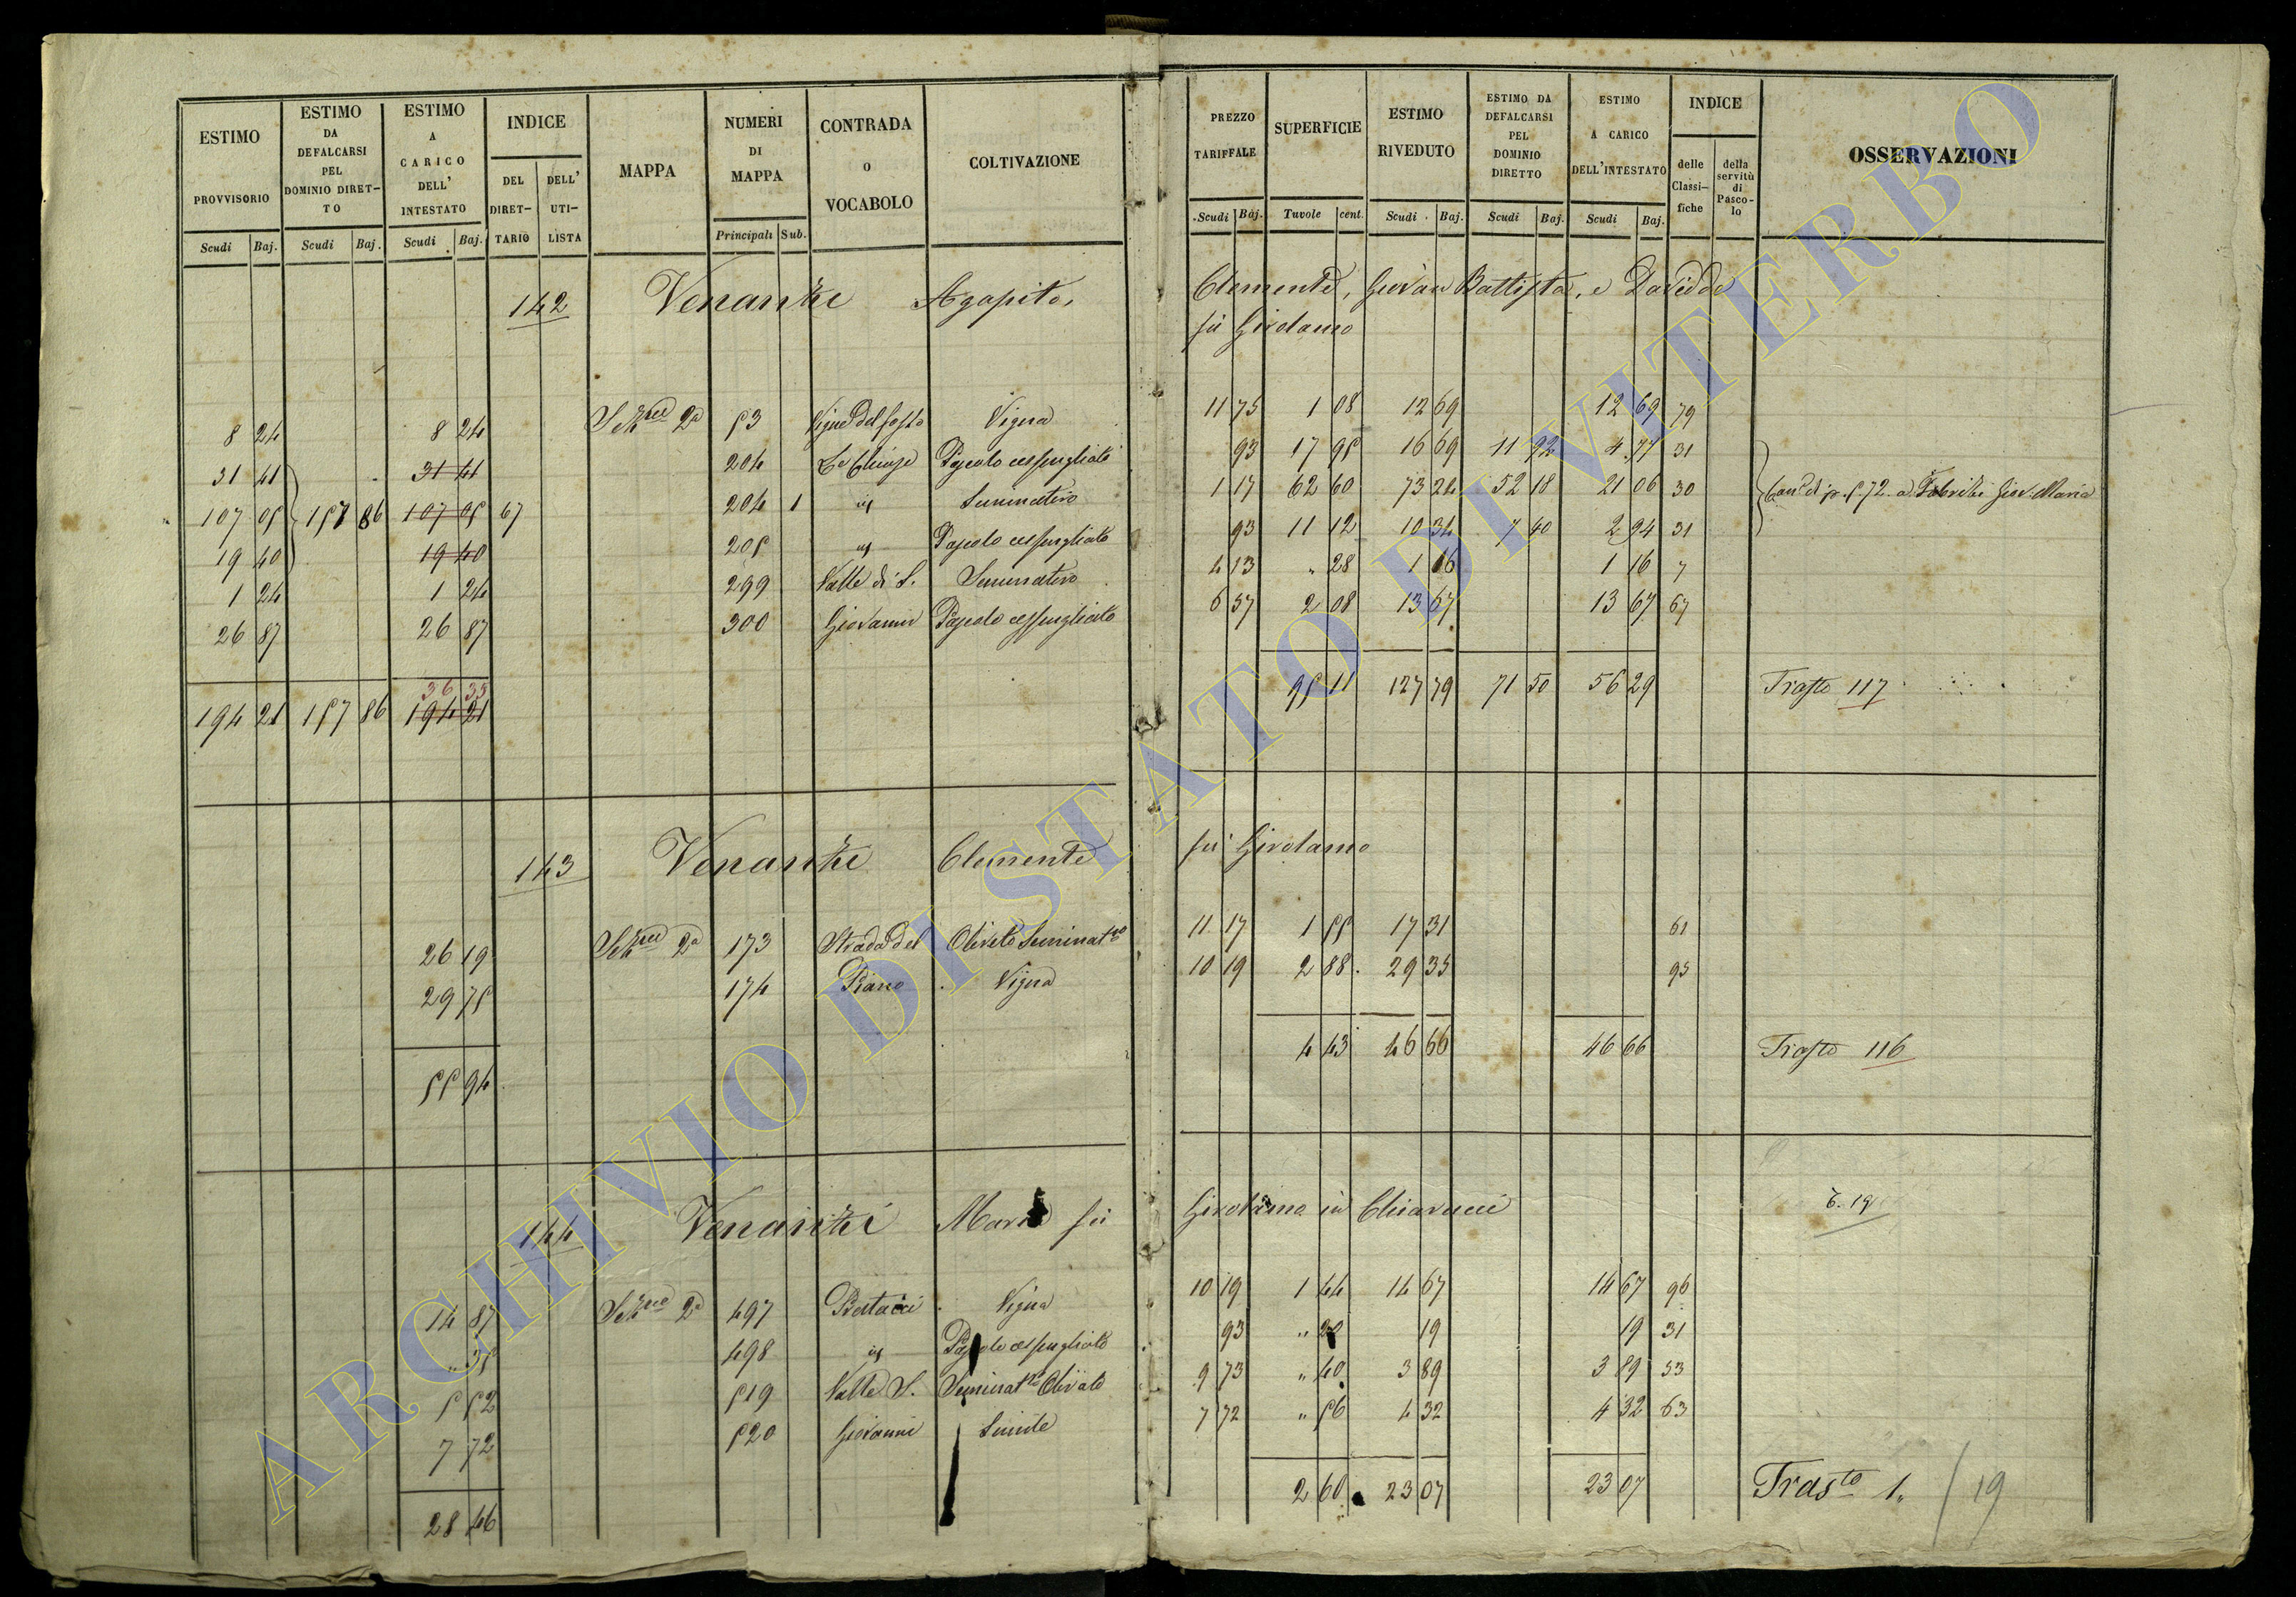 ESTIMO PROVVISORIO Scudi Baj.
ESTIMO DA DEFALCARSI PEL DOMINIO DIRET-TO Scudi Baj.
ESTIMO A CARICO DELL' INTESTATO Scudi Baj.
INDICE DEL DIRET-TARIO DELL' UTI-LISTA
MAPPA
NUMERI DI MAPPA Principali Sub.
CONTRADA O VOCABOLO
COLTIVAZIONE
PREZZO TARIFFALE Scudi Baj.
SUPERFICIE Tavole cent.
ESTIMO RIVEDUTO Scudi Baj.
ESTIMO DA DEFALCARSI PEL DOMINIO DIRETTO Scudi Baj.
ESTIMO A CARICO DELL'INTESTATO Scudi Baj.
INDICE delle Classi-fiche della servitù di Pasco-lo
OSSERVAZIONI
142 Venanzi Agapito, Clemente, Giovan Battista, e Davidde
fù Girolamo
8 24 8 24 Sez.ne 2a 53 Vigne del fosso Vigna 11 75 1 08 12 69 12 69 79
31 41 31 41 204 Le Chiuse Pascolo cespugliato 93 17 95 16 69 11 92 4 77 31
107 05 157 86 107 05 67 204 1 id Seminativo 1 17 62 60 73 24 52 18 21 06 30 Can. di p. 5.72. a Fabrizi Giov. Maria
19 40 19 40 205 id Pascolo cespugliato 93 11 12 10 34 7 40 2 94 31
1 24 1 24 299 Valle di S. Seminativo 4 13 " 28 1 16 1 16 7
26 87 26 87 300 Giovanni Pascolo cespugliato 6 57 2 08 13 67 13 67 67
36 35
194 21 157 86 194 21 95 11 127 79 71 50 56 29 Trasto 117
143 Venanzi Clemente fù Girolamo
26 19 Sez.ne 2a 173 Strada del Oliveto Seminat.vo 11 17 1 55 17 31 61
29 75 174 Piano Vigna 10 19 2 88 29 35 95
55 94 4 43 46 66 46 66 Trasto 116
144 Venanzi Maria fù Girolamo in Chiarucci 6. 19
14 87 Sez.ne 2a 497 Bertacci Vigna 10 19 1 44 14 67 14 67 96
" 35 498 id Pascolo cespugliato 93 " 20 19 19 31
5 52 519 Valle S. Seminat.vo Olivato 9 73 " 40 3 89 3 89 53
7 72 520 Giovanni Simile 7 72 " 56 4 32 4 32 63
28 46 2 60 23 07 23 07 Trasto 1. / 19
ARCHIVIO DI STATO DI VITERBO